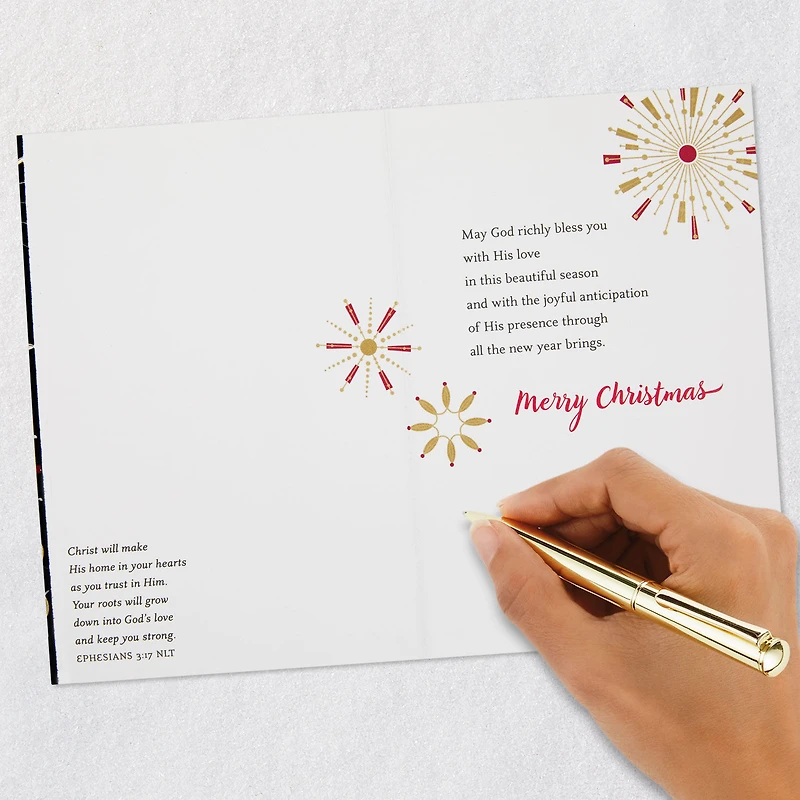 May God richly bless you
with His love
in this beautiful season
and with the joyful anticipation
of His presence through
all the new year brings.
Merry Christmas
Christ will make
His home in your hearts
as you trust in Him.
Your roots will grow
down into God's love
and keep you strong.
EPHESIANS 3:17 NLT